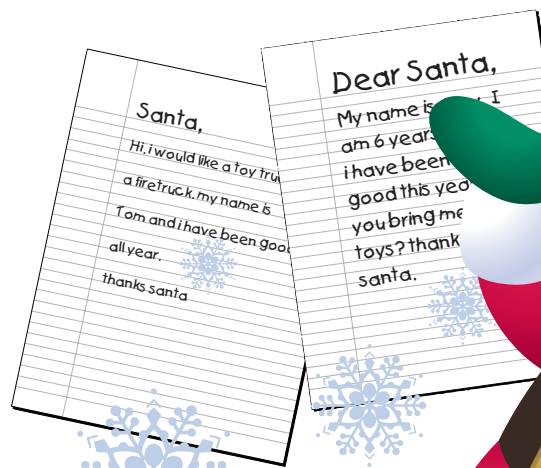 Santa,
Hi, i would like a toy
a firetruck. my name is
Tom and i have been good
all year.
thanks santa
Dear Santa,
My name is I
am 6 years
i have been
good this
you bring me
toys? thank
santa.